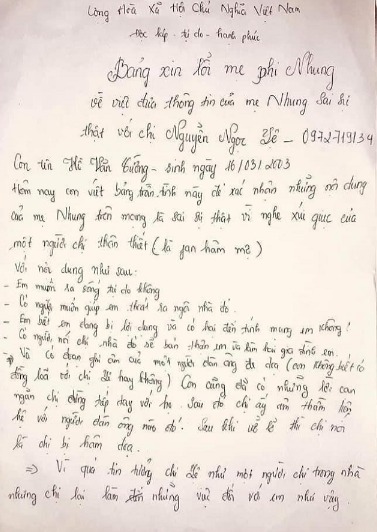 Cộng Hoà Xã Hội Chủ Nghĩa Việt Nam
Độc lập - tự do - hạnh phúc
Bảng xin lỗi mẹ phi Nhung
về việc đưa thông tin của mẹ Nhung sai sự
thật với chị Nguyễn Ngọc - 0972719134
Con tên Hồ Văn Cường - sinh ngày 16/03/2003
Hôm nay con viết bảng tường trình này để xác nhận những nội dung
của mẹ Nhung trên mạng là sai sự thật vì nghe xúi giục của
một người chị thân thiết (là fan hâm mộ)
Với nội dung như sau:
- Em muốn ra sống tự do không
- Có người muốn giúp em thoát ra ngôi nhà đó.
- Em biết em đang bị lợi dụng và có hại đến tính mạng em không?
- Có người nói chị nhà đó sẽ bán thân em và làm hại gia đình em.
Và có đoạn ghi âm của một người đàn ông đe dọa (con không biết có
đồng loã với chị hay không) Con cũng đã có những lời can
ngăn chị đừng tiếp tay với họ. Sau đó chị ấy âm thầm liên
hệ với người đàn ông nào đó. Sau khi về thì chị nói
là chị bị hăm dọa.
=> Vì quá tin tưởng chị như một người chị trong nhà
nhưng chị lại làm những vụ đó với em như vậy.